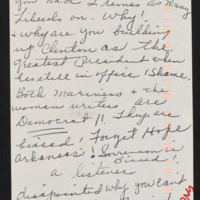 you had 2 times as many
Liberals on. Why?
+ why are you building
up Clinton as the
greatest President when
he still in office! Shame.
Both Mariness + the
woman writer are
Democrat!! They are
biased! Forget Hope
Arkansas! Sorenson is
Biased!
a listener
disappointed why you can't